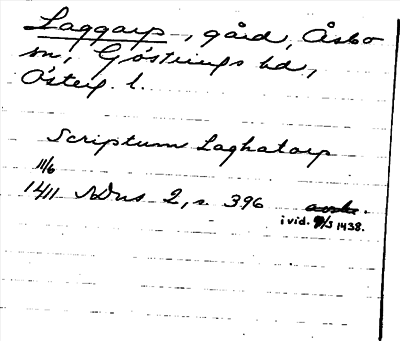 Laggarp, gård, Åsbo
sn, Göstrings hd,
Österg. l.
Scriptum Laghatorp
11/6
1411 SDns 2, s. 396 avskr.
i vid. 9/5 1438.